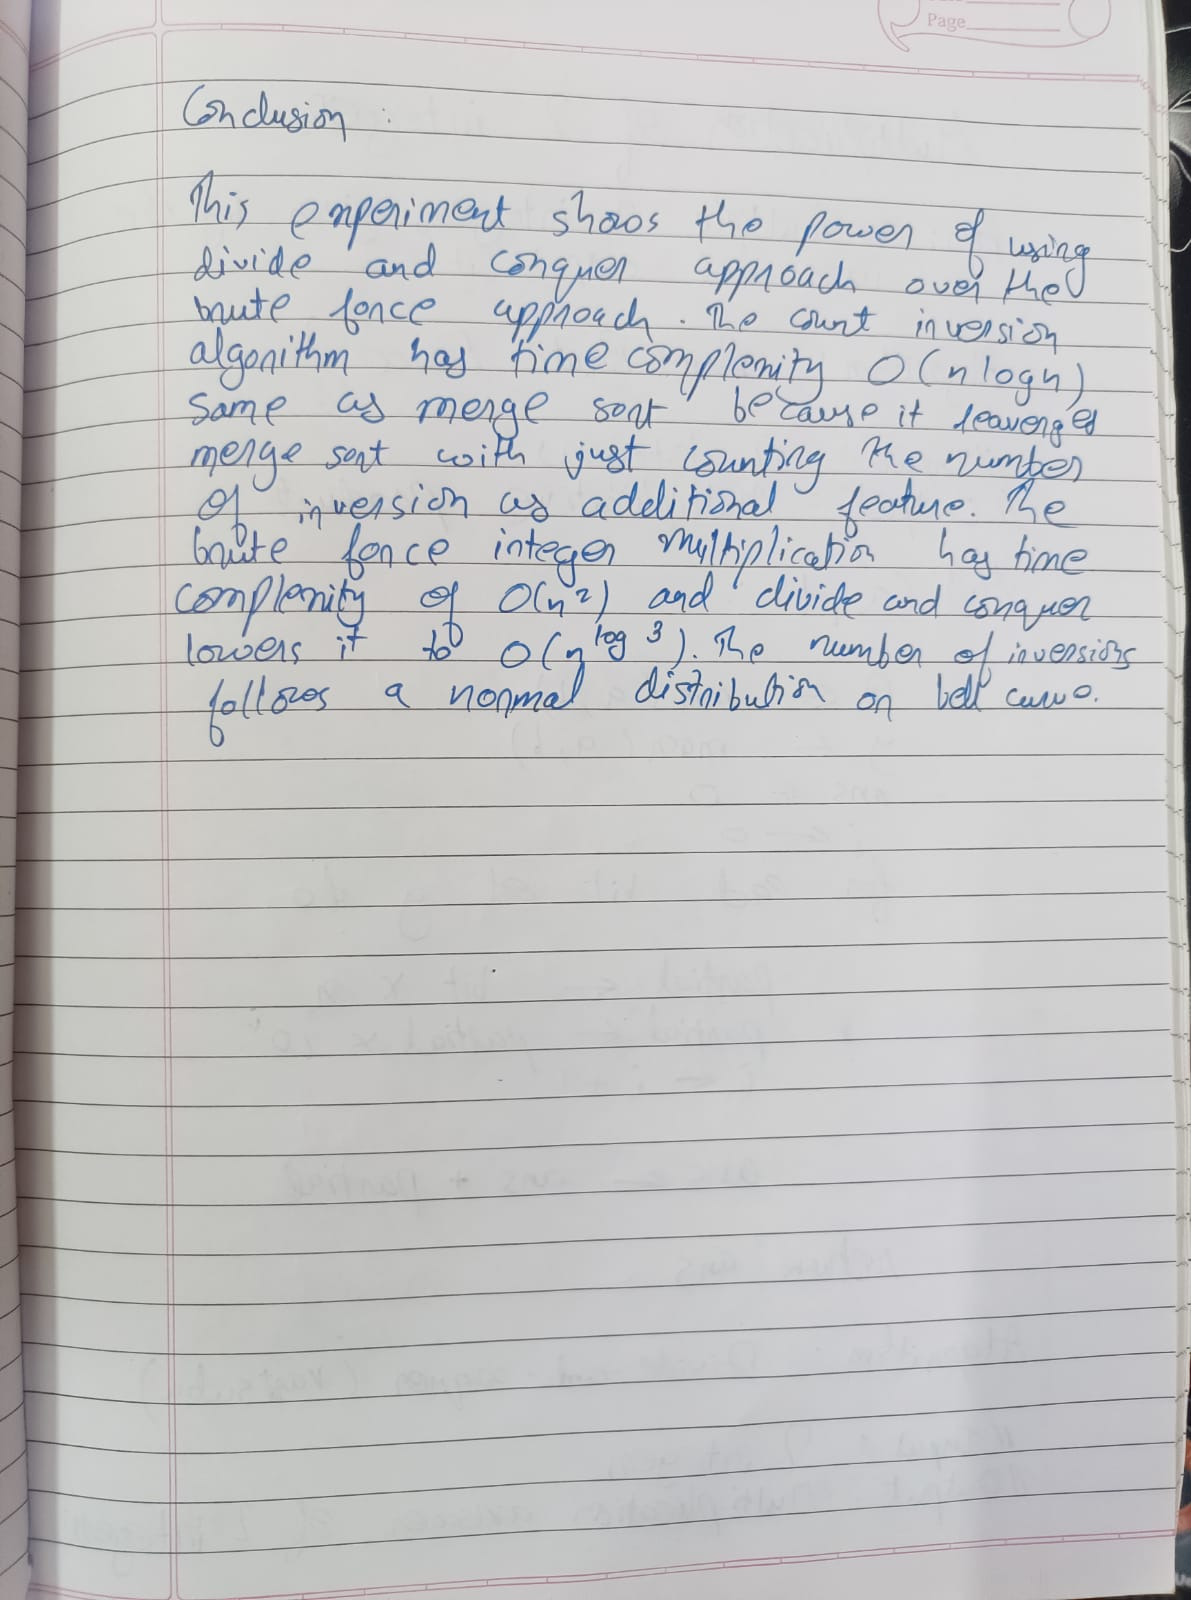 Page
Conclusion :
This experiment shows the power of using
divide and conquer approach over the
brute force approach. The count inversion
algorithm has time complexity O(n log n)
same as merge sort because it leaverges
merge sort with just counting the number
of inversion as additional feature. The
brute force integer multiplication has time
complexity of O(n²) and divide and conquer
lowers it to O(n^log 3). The number of inversions
follows a normal distribution or bell curve.